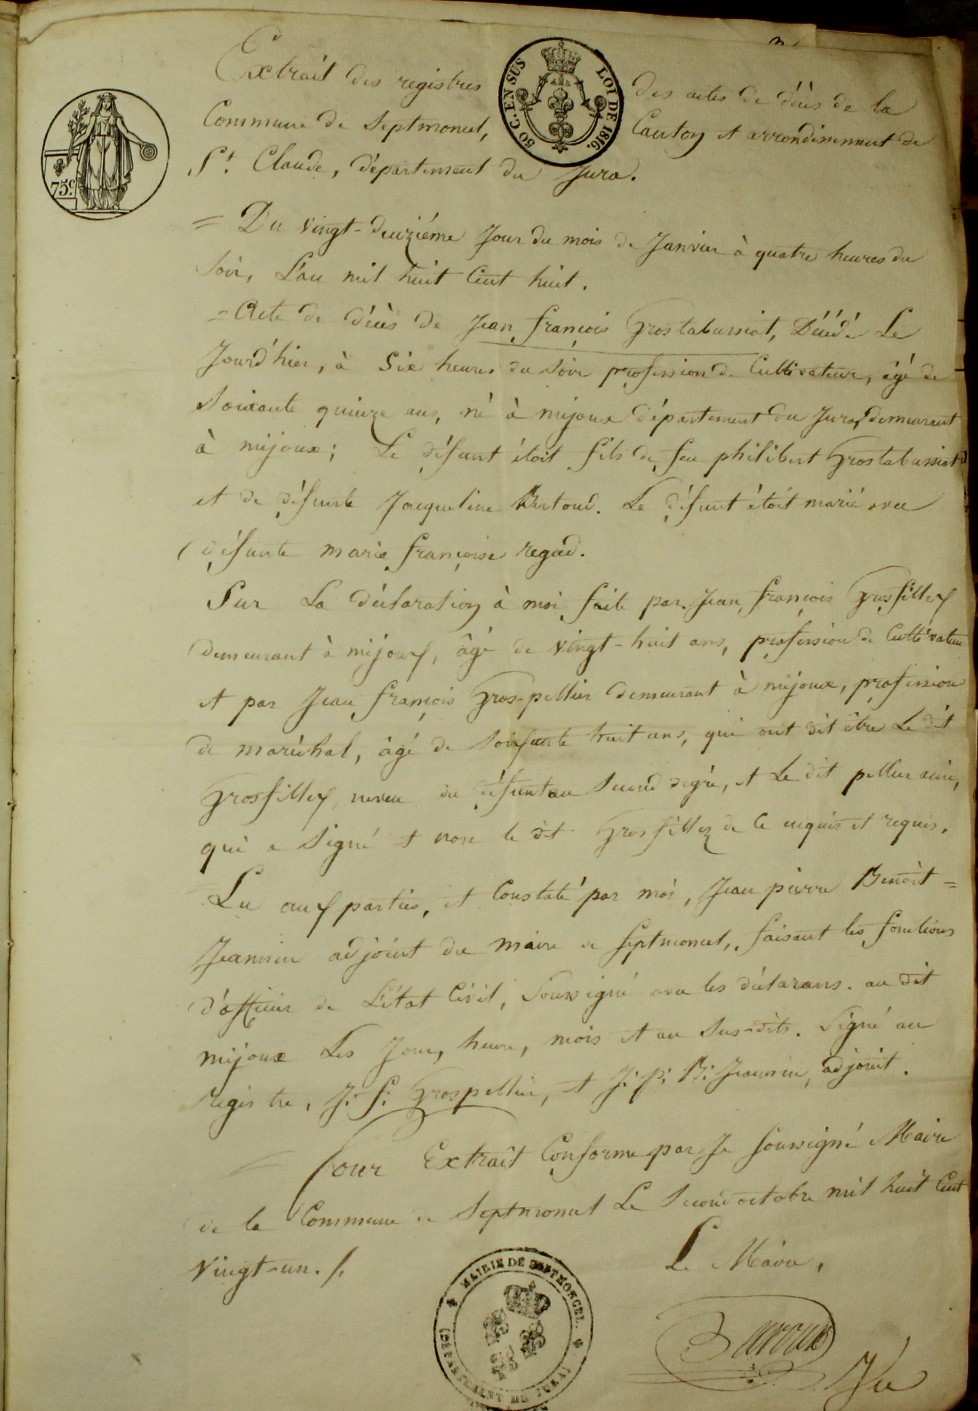 Extrait des registres des actes de décès de la
50 C. EN SUS LOI DE 1816.
75c.
Commune de Septmoncel, Canton et arrondissement de
St. Claude, département du Jura.
= Du vingt-deuxiéme Jour du mois de Janvier à quatre heures du
soir, L'an mil huit Cent huit.
= Acte de décès de Jean françois Grostabussiat, Décédé Le
Jourd'hier, à Six heures du soir profession de Cultivateur, âgé de
Soixante quinze ans, né à mijoux département du Jura, demeurant
à mijoux; Le défunt étoit fils de feu philibert Grostabussiat
et de défunte Jacqueline Bertoud. Le défunt étoit marié avec
défunte marie françoise regad.
Sur La déclaration à moi faite par Jean françois Grosfillex
demeurant à mijoux, âgé de vingt-huit ans, profession de Cultivateur
et par Jean françois Gros-pellier demeurant à mijoux, profession
de maréchal, âgé de soixante huit ans, qui ont dit être Le dit
Grosfillex neveu du défunt au Second degré, et Le dit pellier
qui a Signé et non le dit Grosfillez de ce enquis et requis.
Lu aux parties, et Constaté par moi, Jean pierre Benoit=
Jeannin adjoint du maire de Septmoncel, faisant les fonctions
d'officier de L'état Civil, Soussigné avec les déclarans. au dit
mijoux Les Jour, heure, mois et an Sus-dits. Signé au
registre, J: f: Grospellier, et J: p: B: Jeannin, adjoint.
Pour Extrait Conforme par Je Soussigné Maire
de la Commune de Septmoncel Le Second octobre mil huit Cent
vingt-un./.
Le Maire,
MAIRIE DE SEPTMONCEL.
(DEPARTEMENT DU JURA)
Vu